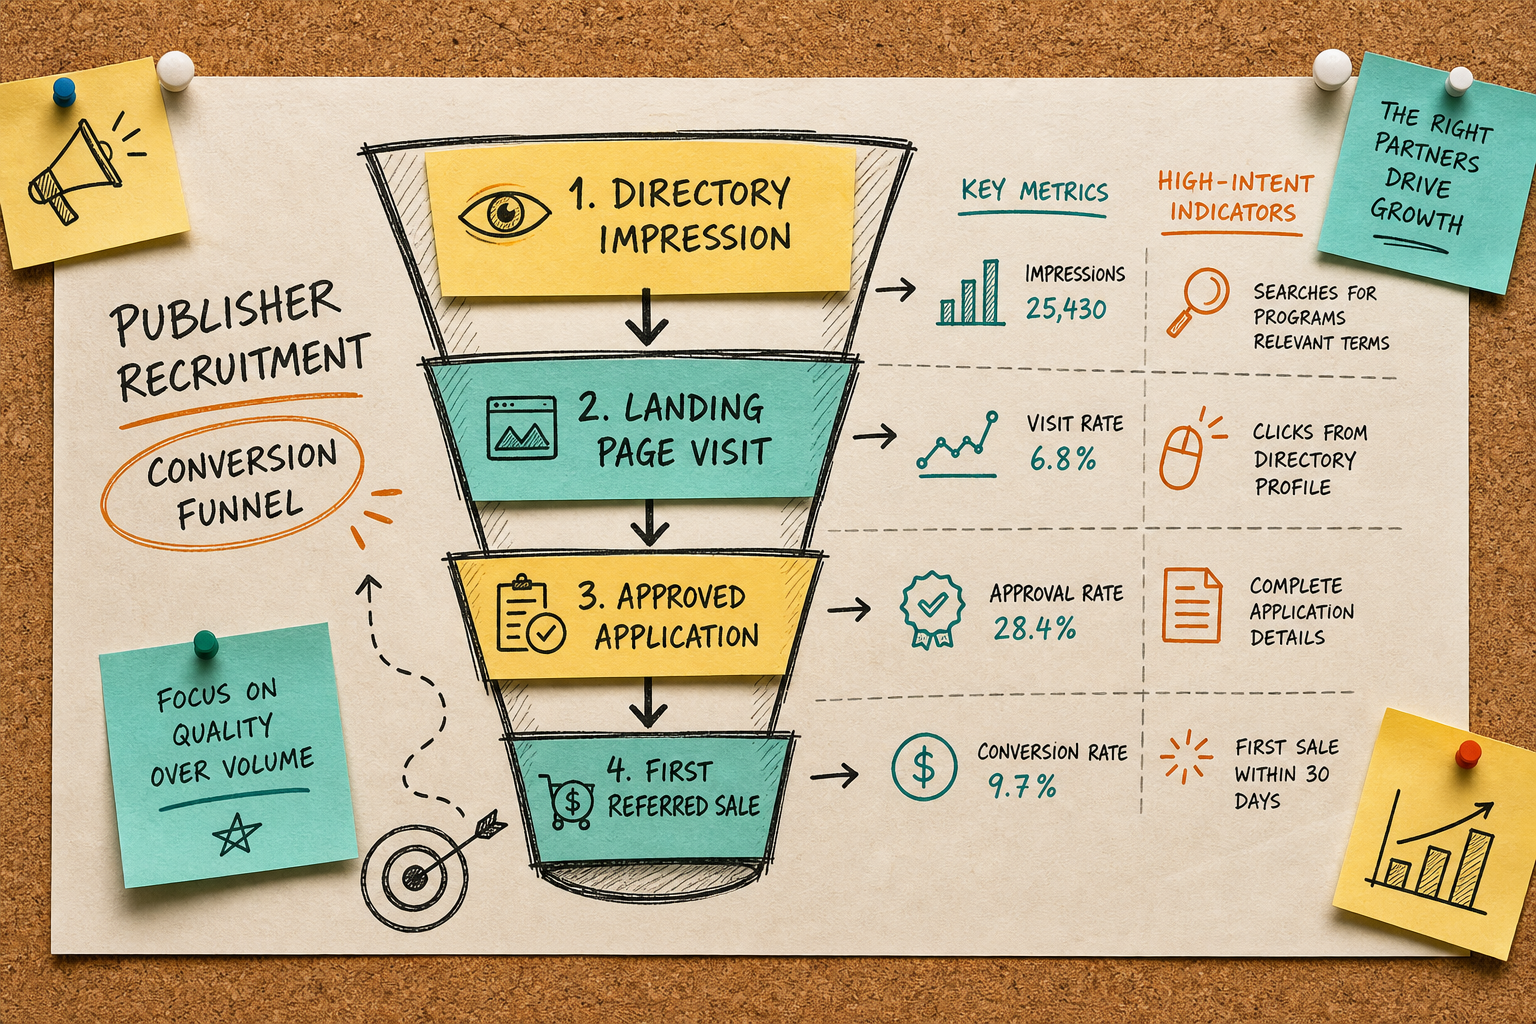 PUBLISHER
RECRUITMENT
CONVERSION
FUNNEL
FOCUS ON
QUALITY
OVER VOLUME
1. DIRECTORY
IMPRESSION
2. LANDING
PAGE VISIT
3. APPROVED
APPLICATION
4. FIRST
REFERRED SALE
$
KEY METRICS
IMPRESSIONS
25,430
VISIT RATE
6.8%
APPROVAL RATE
28.4%
$
CONVERSION RATE
9.7%
HIGH-INTENT
INDICATORS
SEARCHES FOR
PROGRAMS
RELEVANT TERMS
CLICKS FROM
DIRECTORY
PROFILE
COMPLETE
APPLICATION
DETAILS
FIRST SALE
WITHIN 30
DAYS
THE RIGHT
PARTNERS
DRIVE
GROWTH